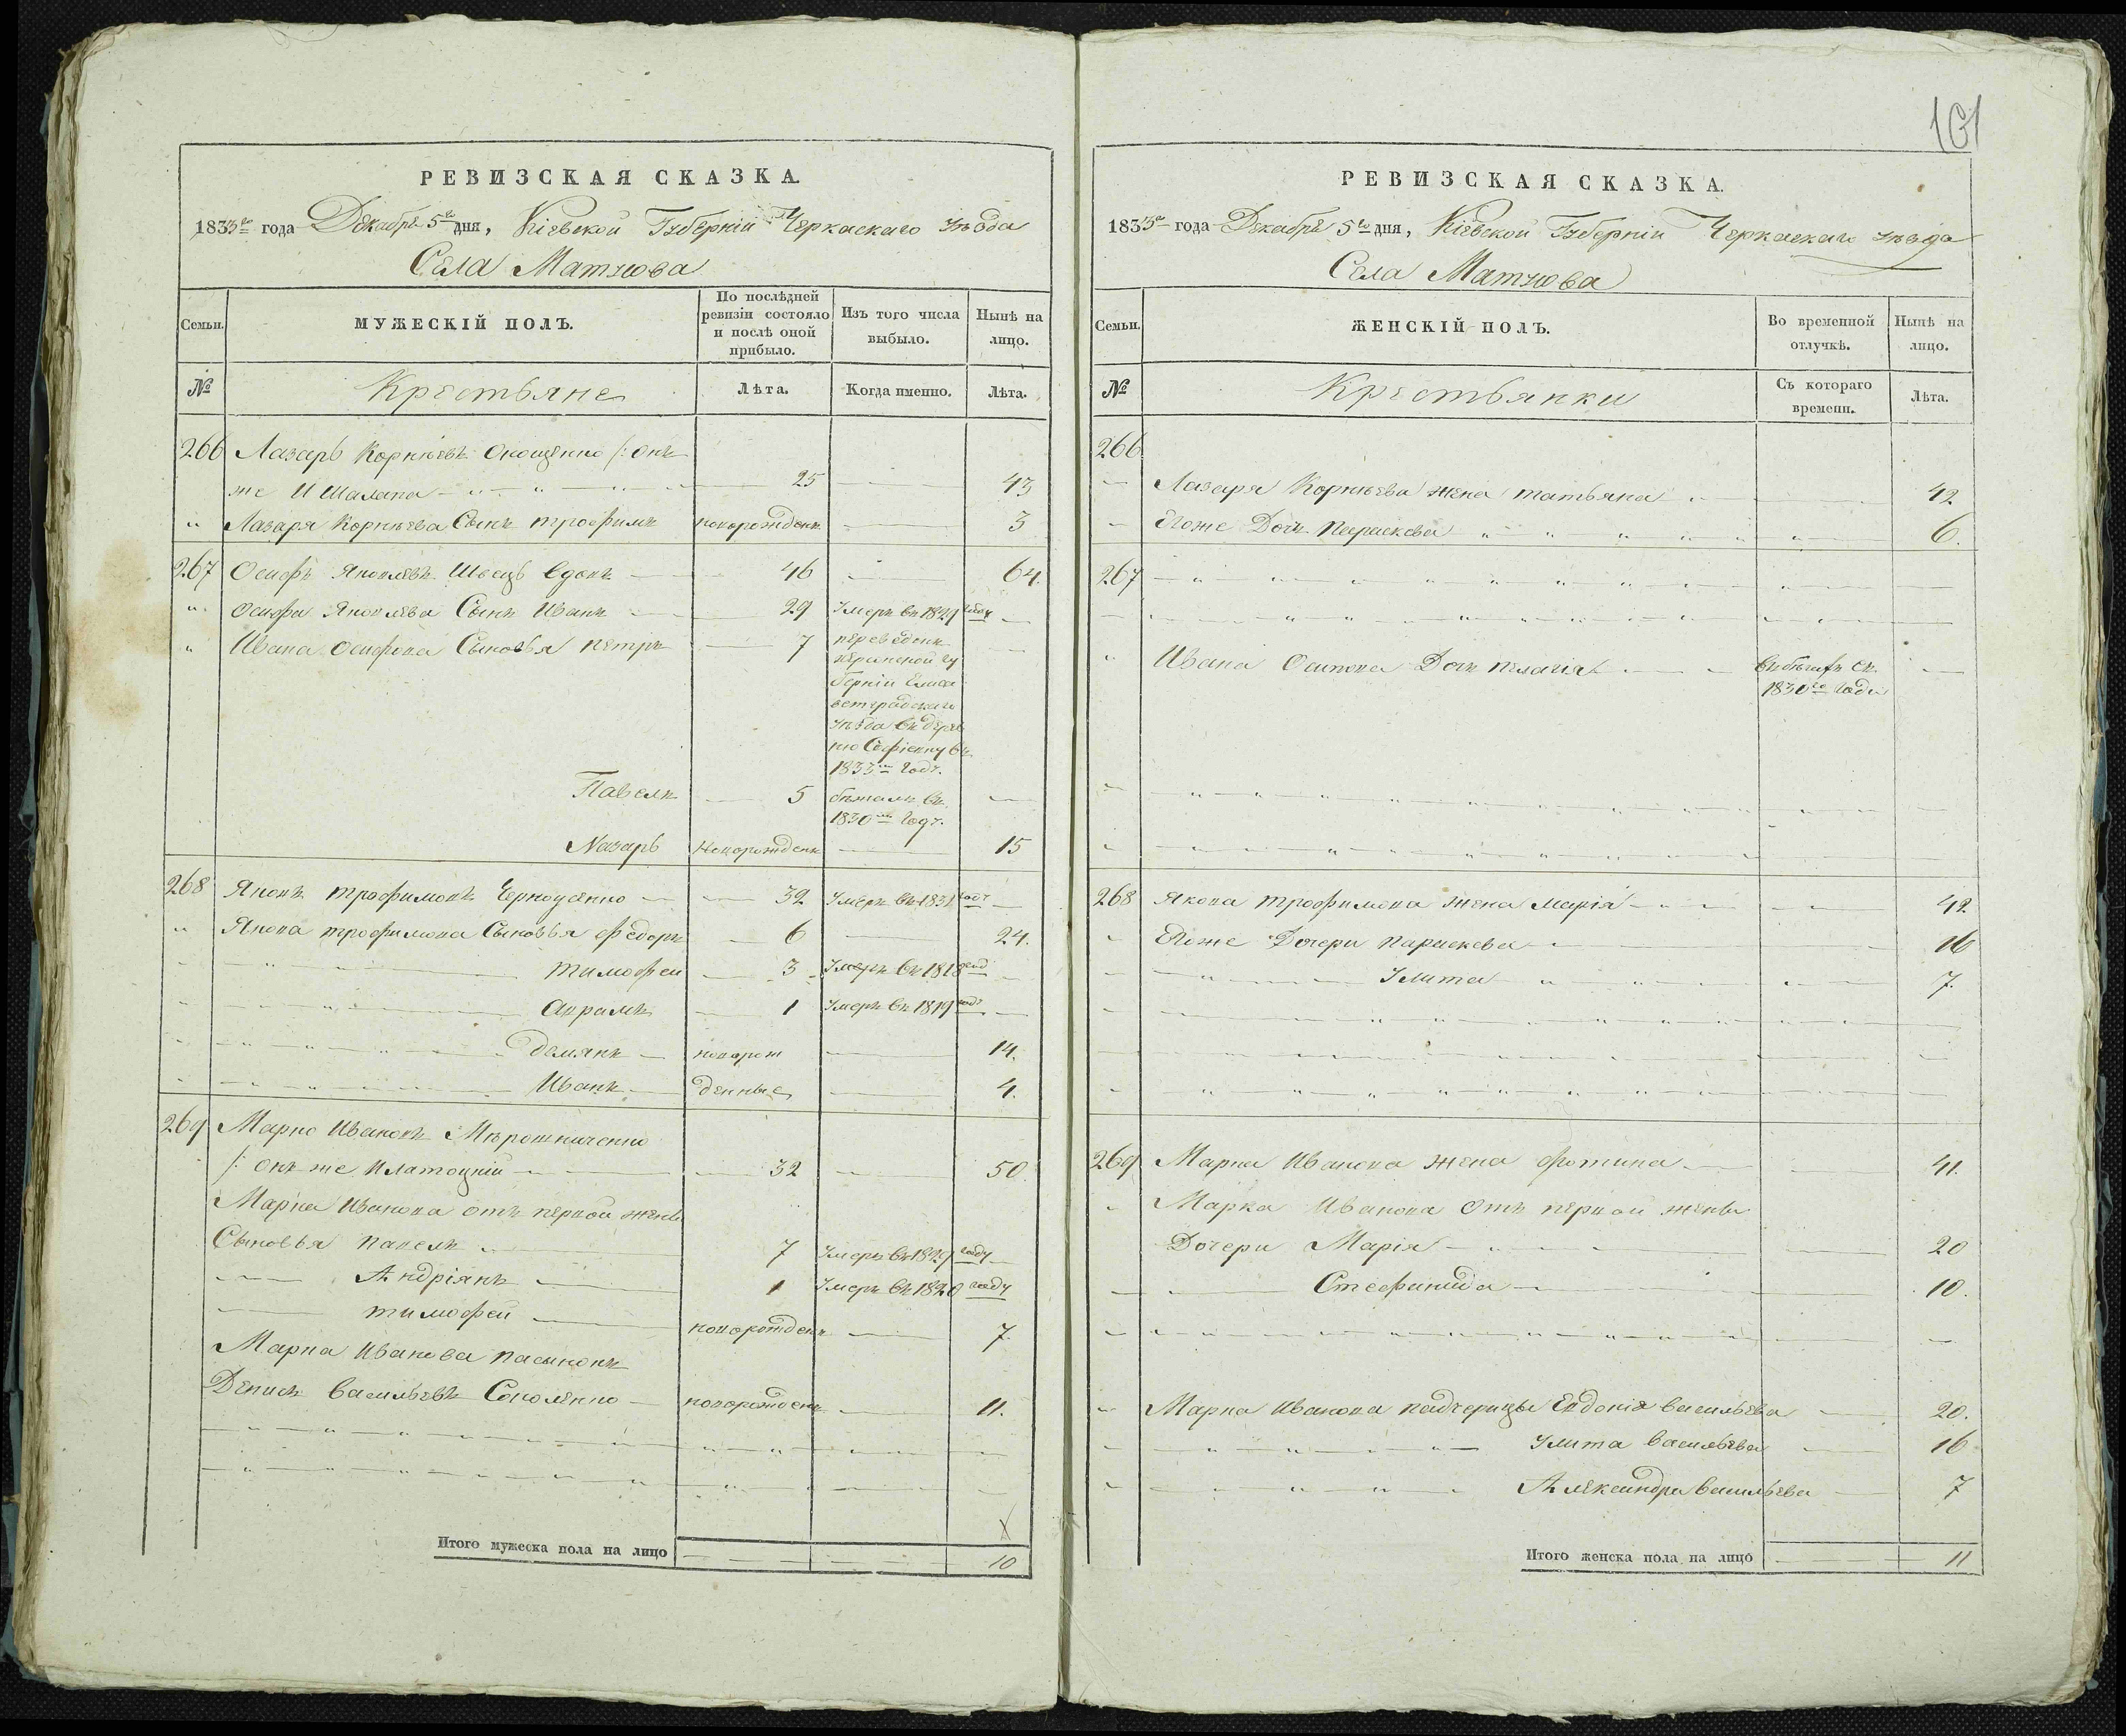 РЕВИЗСКАЯ СКАЗКА.
1833го года Декабря 5го дня, Кіевской Губерніи Черкаскаго уѣзда
Села Матусова
Семьи.
МУЖЕСКІЙ ПОЛЪ.
По послѣдней ревизіи состояло и послѣ оной прибыло.
Изъ того числа выбыло.
Нынѣ на лицо.
№
Крестьяне
Лѣта.
Когда именно.
Лѣта.
266 Лазарь Корнѣевъ /: онъ
же 25 43
Лазаря Корнѣева Сынъ трофимъ новорожденъ 3
267 Осифъ Яковлевъ Швецъ вдовъ 46 64.
Осифа Яковлева Сынъ Иванъ 29 Умеръ въ 1829 году
Ивана Осифова Сыновья петръ 7 переведенъ
херсонской гу
берніи Елиса
ветградскаго
уѣзда въ дерев
ню Софіевку въ
1833м году.
Павелъ 5 бѣжалъ въ
1830м году.
Назарь Новорожденъ 15
268 Яковъ трофимовъ Черноусенко 32 Умеръ въ 1831 году
Якова трофимова Сыновья федоръ 6 24.
тимофей 3 Умеръ въ 1818 году
Аврамъ 1 Умеръ въ 1819 году
демянъ новорож 14.
Иванъ денные 4.
269 Марко Ивановъ Мѣрошниченко
/: онъ же 32 50.
Марка Иванова отъ первой жены
Сыновья павелъ 7 Умеръ въ 1829 году
Андріянъ 1 Умеръ въ 1820 году
тимофей новорожденъ 7.
Марка Иванова пасынокъ
Денисъ Васильевъ Соколенко новорожденъ 11.
Итого мужеска пола на лицо 10
161
РЕВИЗСКАЯ СКАЗКА.
1833го года Декабря 5го дня, Кіевской Губерніи Черкаскаго уѣзда
Села Матусова
Семьи.
ЖЕНСКІЙ ПОЛЪ.
Во временной отлучкѣ.
Нынѣ на лицо.
№
Крестьянки
Съ котораго времени.
Лѣта.
266.
Лазаря Корнѣева жена татьяна 42
Егоже Дочь Параскева 6.
267
Ивана Осипова Дочь пелагія въ бѣгахъ съ
1830го года
268 Якова трофимова жена марія 42
Егоже Дочери параскева 16
Улита 7.
269 Марка Иванова жена фотина 41.
Марка Иванова Отъ первой жены
Дочери Марія 20
Стефанида 10.
Марка Иванова падчерицы Евдокія васильева 20.
Улита васильева 16
Александра васильева 7
Итого женска пола на лицо 11